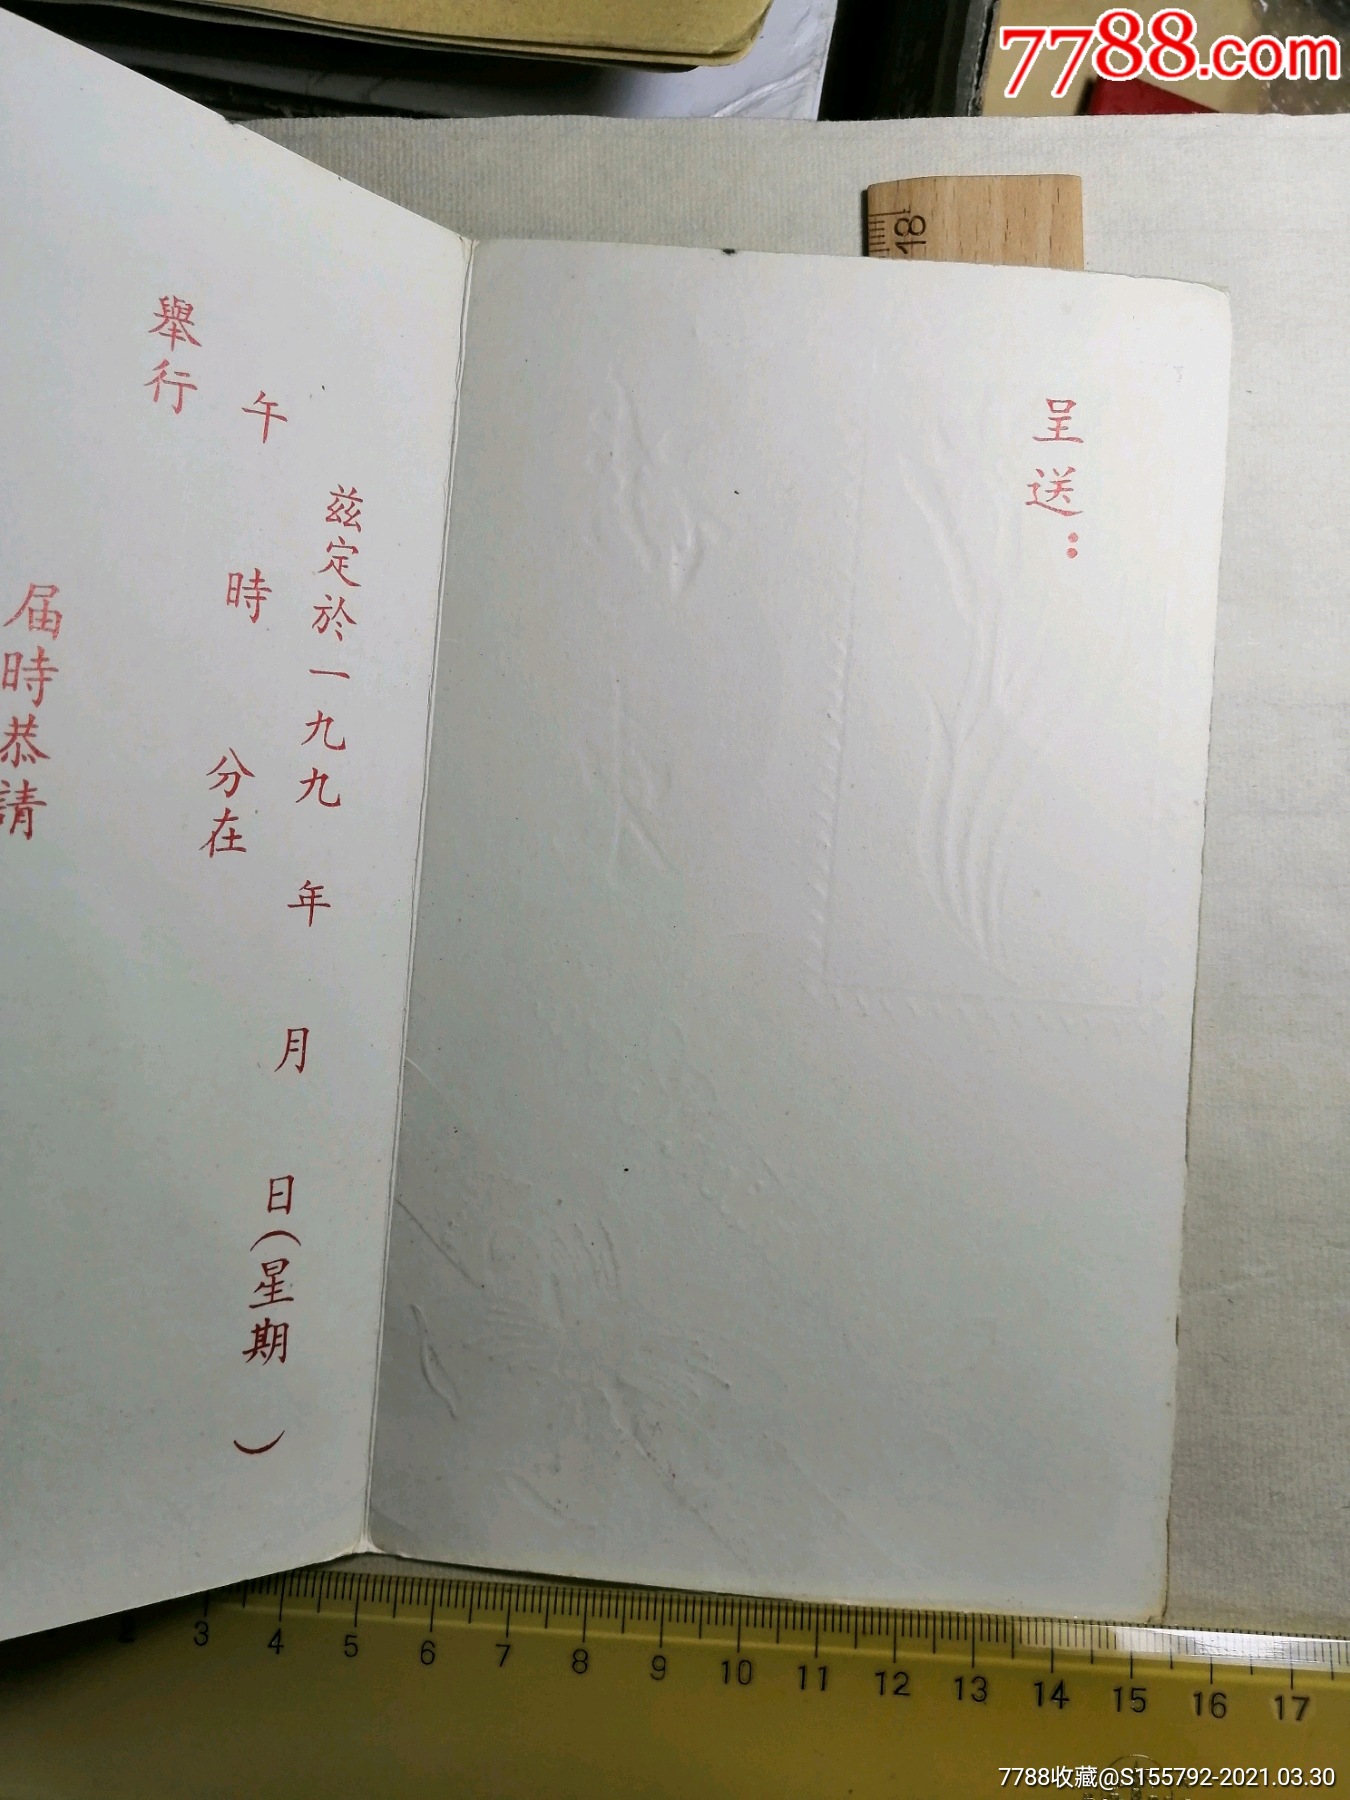 7788.com
18
呈送：
茲定於一九九 年 月 日（星期 ）
午 時 分在
舉行
届時恭請
2 3 4 5 6 7 8 9 10 11 12 13 14 15 16 17
7788收藏@S155792-2021.03.30